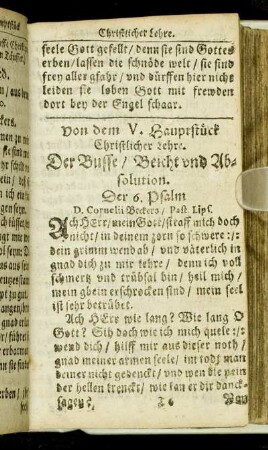 Christlicher Lehre.
seele Gott gefellt / denn sie sind Gottes
erben / lassen die schnöde welt / sie sind
frey aller gfahr / vnd dürffen hier nichts
leiden sie loben Gott mit frewden
dort bey der Engel schaar.
Von dem V. Hauptstück
Christlicher Lehre.
Der Busse / Beicht vnd Ab-
solution.
Der 6. Psalm
D. Cornelii Beckers / Past. Lips.
Ach HErr / mein Gott / straff mich doch
nicht / in deinem zorn so schwere :/:
dein grimm wend ab / vnd väterlich in
gnad dich zu mir kehre / denn ich voll
schmertz vnd trübsal bin / heil mich /
mein gbein erschrocken sind / mein seel
ist sehr betrübet.
Ach HErr wie lang? Wie lang O
Gott? Sih doch wie ich mich quele :/:
wend dich / hilff mir aus dieser noth /
gnad meiner armen seele / im tod man
deiner nicht gedenckt / vnd wen die pein
der hellen krenckt / wie kan er dir danck-
sagen?